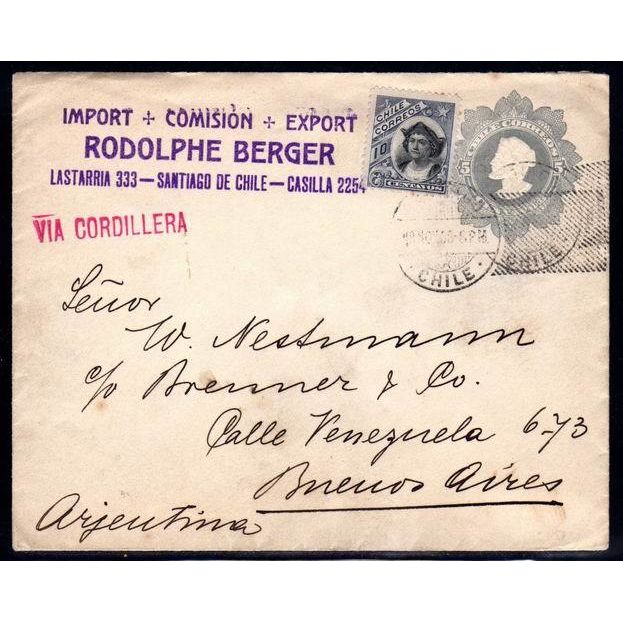 IMPORT + COMISIÓN + EXPORT
RODOLPHE BERGER
LASTARRIA 333 — SANTIAGO DE CHILE — CASILLA 2254
VIA CORDILLERA
CHILE
CORREOS
10
CENTAVOS
5 5
CHILE
CHILE
Señor
W. Nestmann
c/o Brenner & Co.
Calle Venezuela 673
Buenos Aires
Arjentina